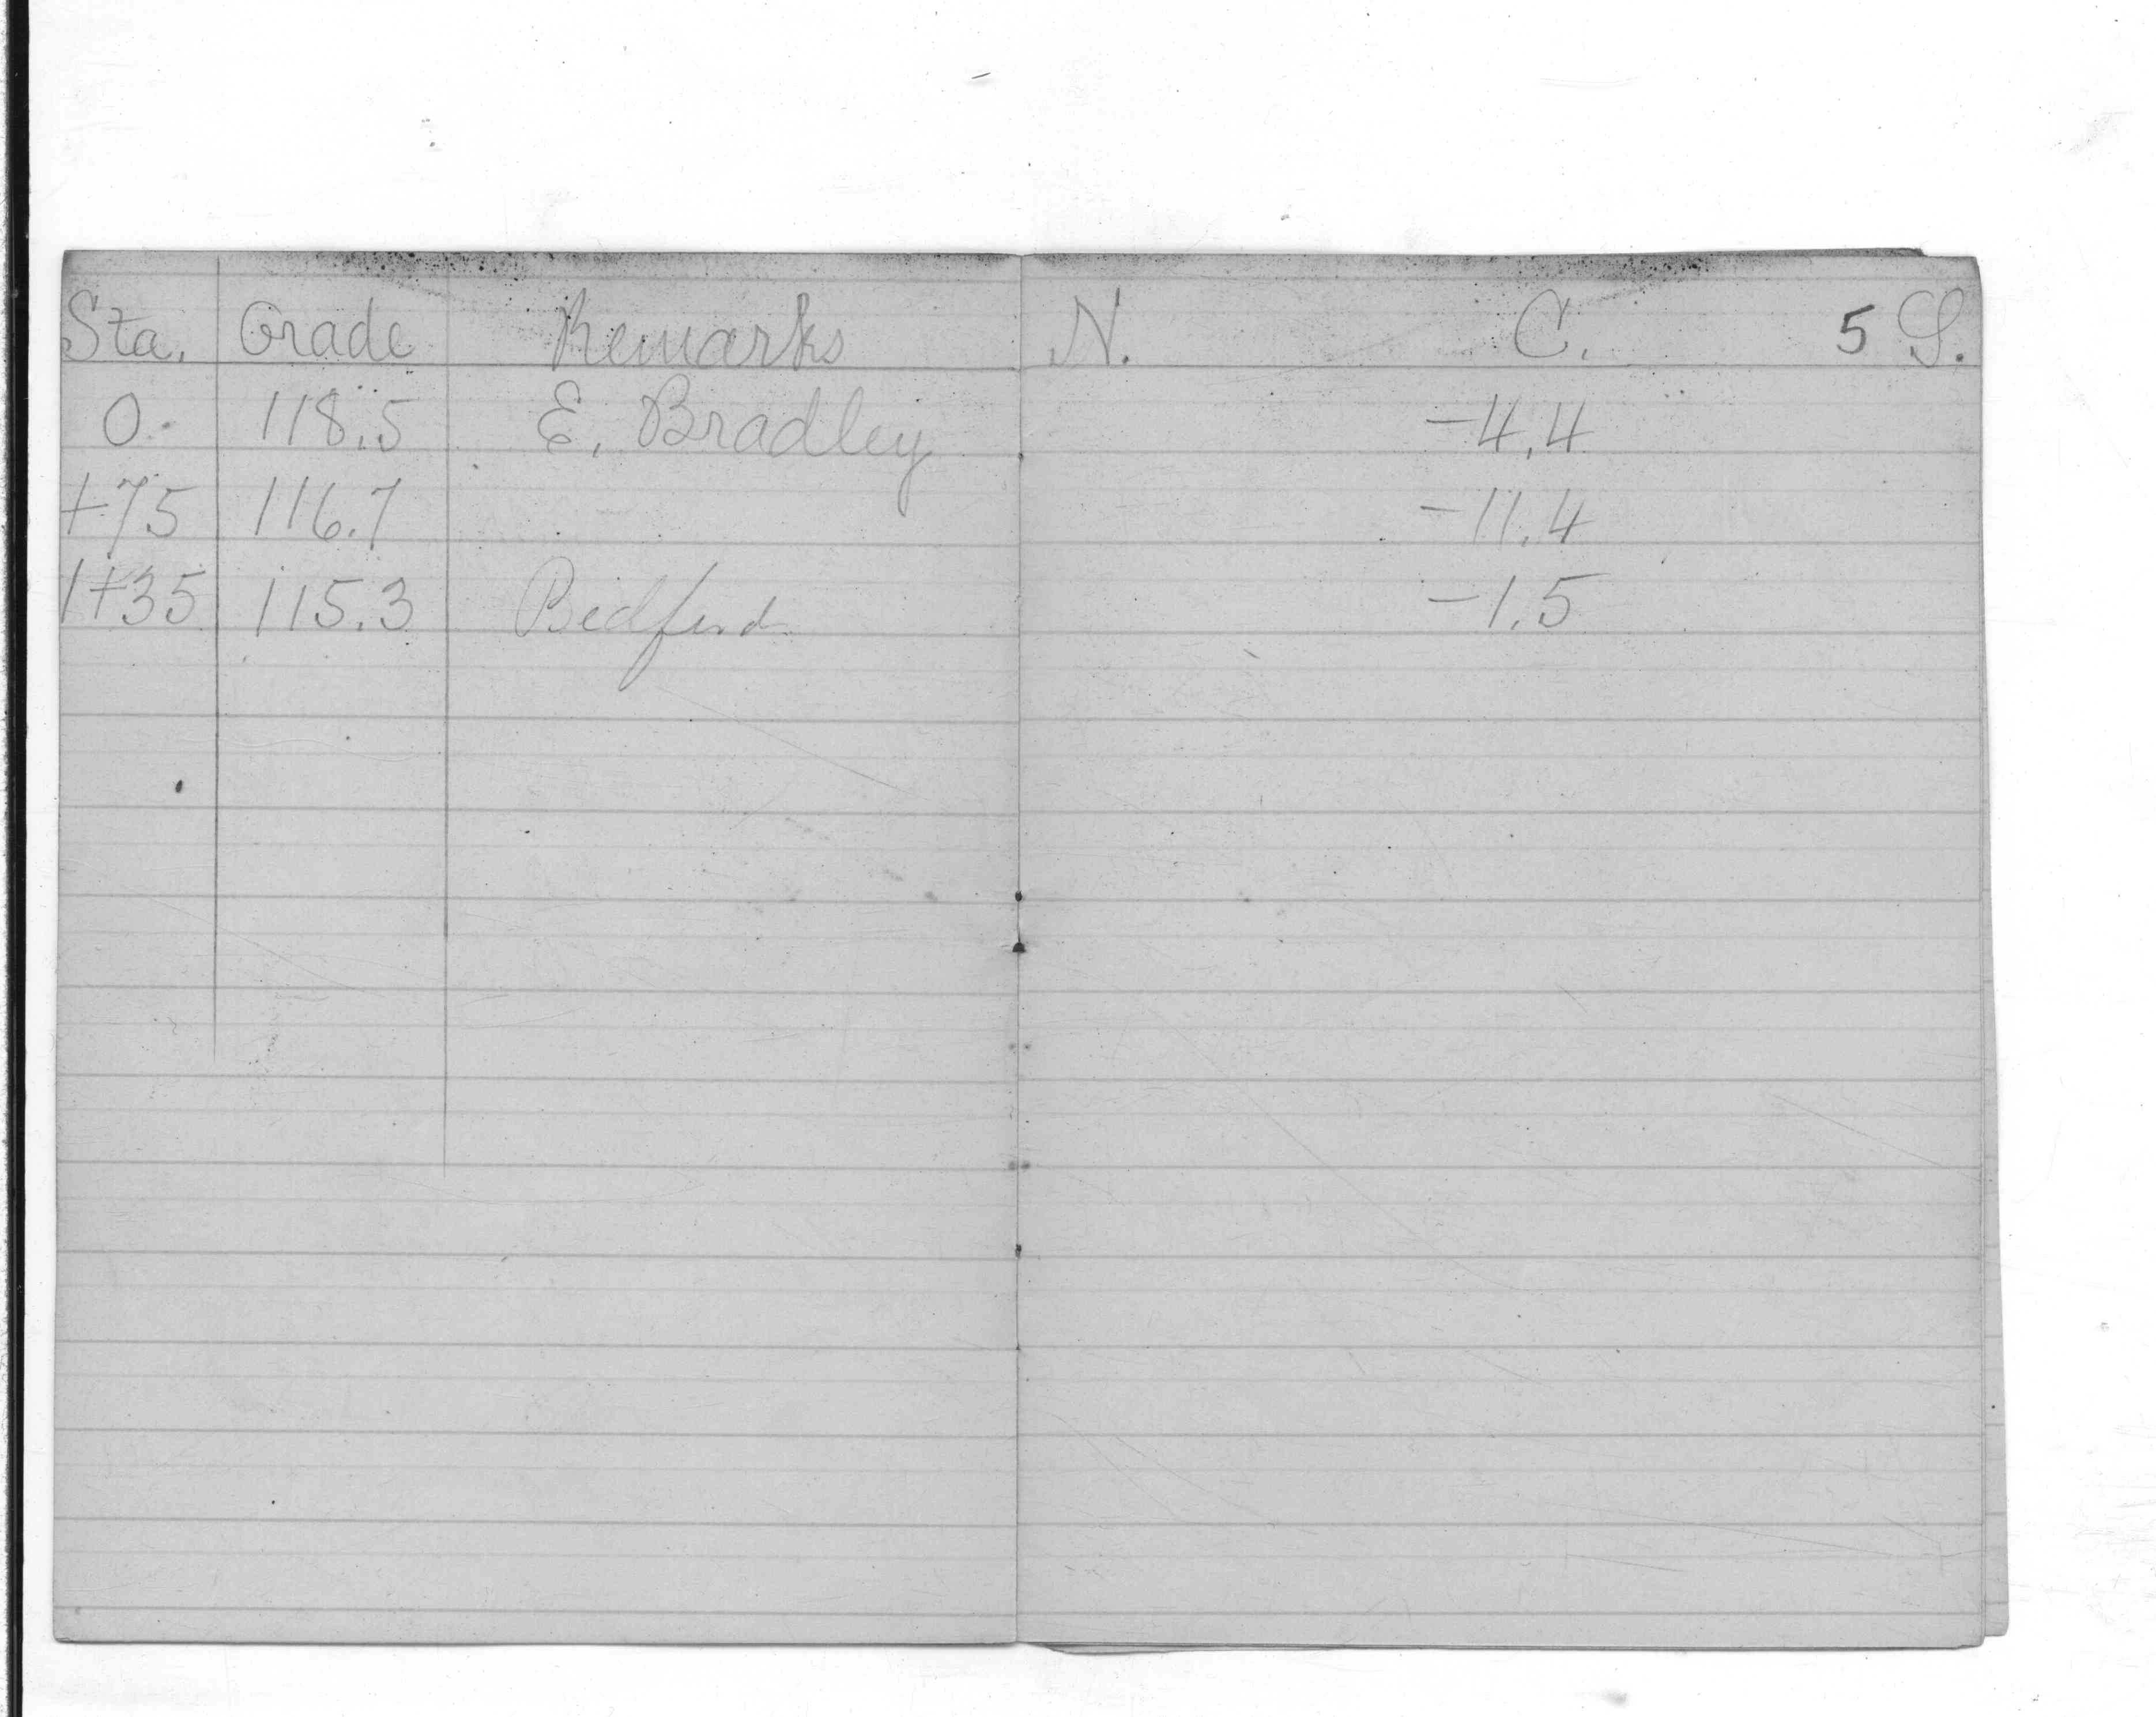 Sta. Grade Remarks N. C. 5 S.
0. 118.5 E. Bradley -4.4
+75 116.7 -11.4
1+35 115.3 Bedford -1.5